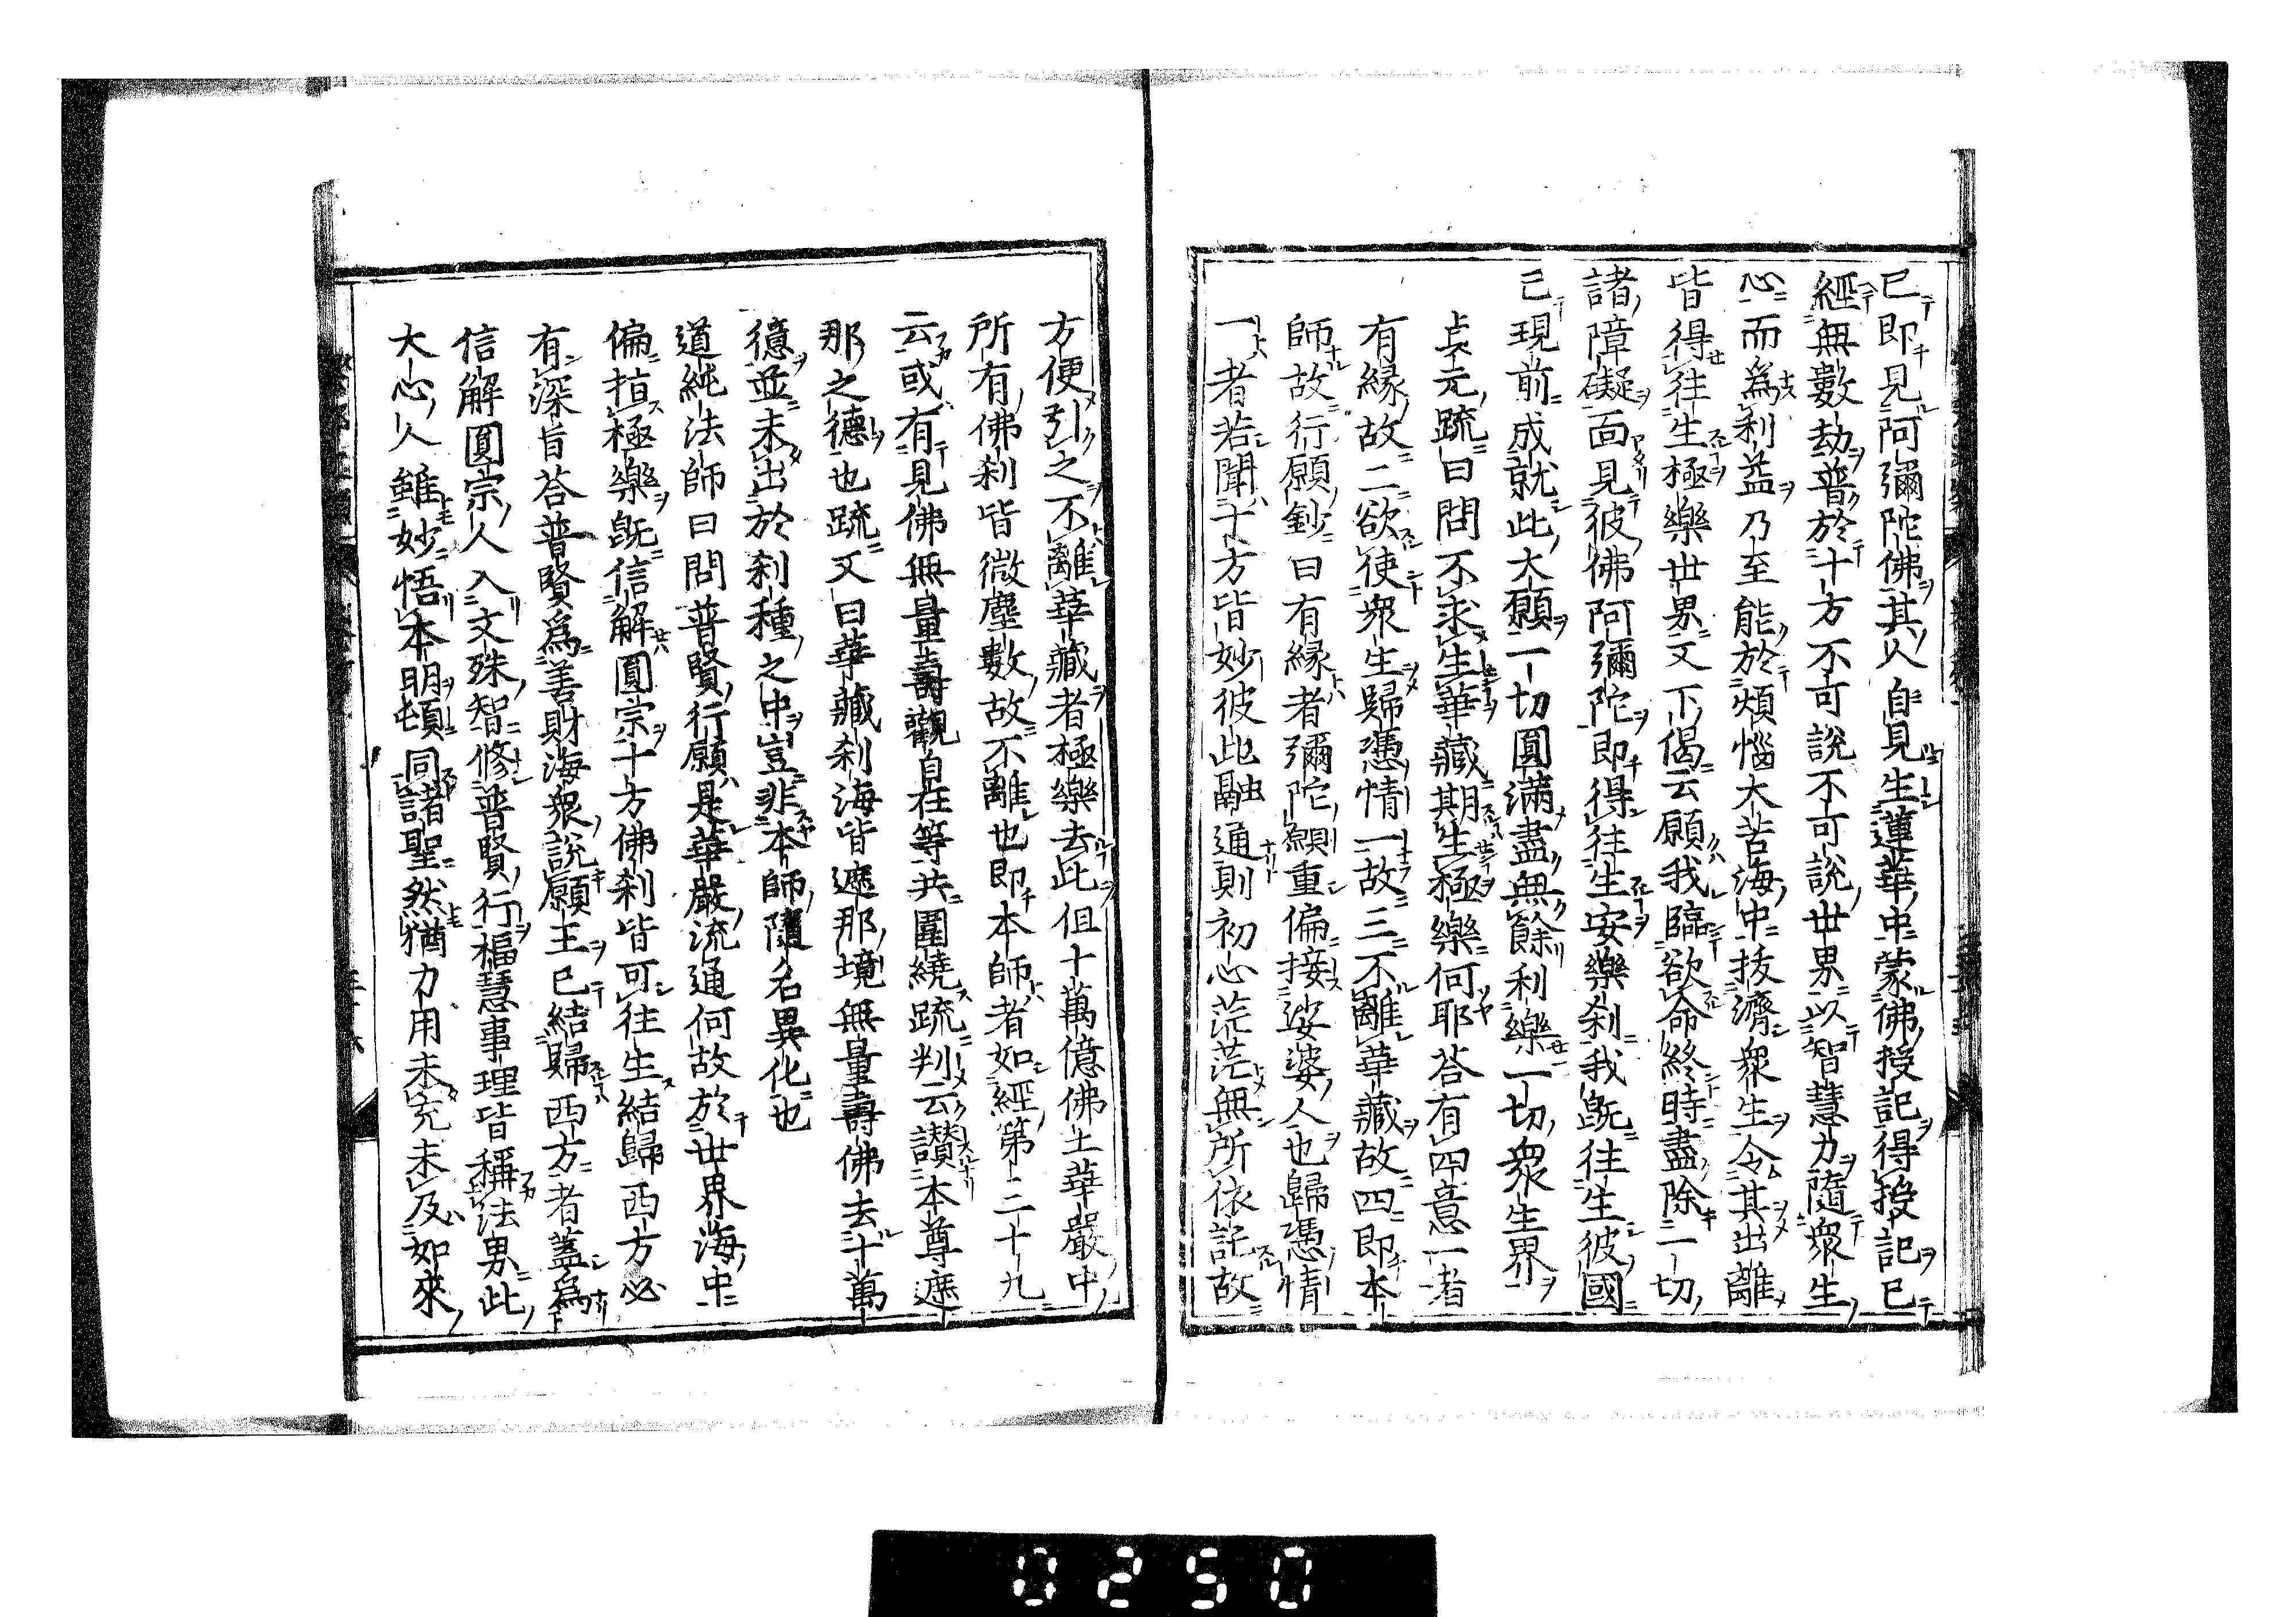 已即見阿彌陀佛其人自見生蓮華中蒙佛授記得授記已
經無數劫普於十方不可說不可說世界以智慧力隨衆生
心而爲利益乃至能於煩惱大苦海中拔濟衆生令其出離
皆得往生極樂世界文下偈云願我臨欲命終時盡除一切
諸障礙面見彼佛阿彌陀即得往生安樂刹我既往生彼國
已現前成就此大願一切圓滿盡無餘利樂一切衆生界
貞元疏曰問不求生華藏期生極樂何耶荅有四意一者
有緣故二欲使衆生歸憑情一故三不離華藏故四即本
師故行願鈔曰有緣者彌陀願重偏接娑婆人也歸憑情
一者若聞十方皆妙彼此融通則初心茫茫無所依託故
方便引之不離華藏者極樂去此但十萬億佛土華嚴中
所有佛刹皆微塵數故不離也即本師者如經第二十九
云或有見佛無量壽觀自在等共圍繞疏判云讃本尊遮
那之德也疏文曰華藏刹海皆遮那境無量壽佛去十萬
億並未出於刹種之中豈非本師隨名異化也
道純法師曰問普賢行願是華嚴流通何故於世界海中
偏指極樂既信解圓宗十方佛刹皆可往生結歸西方必
有深旨荅普賢爲善財海衆說願王已結歸西方者蓋爲
信解圓宗人入文殊智修普賢行福慧事理皆稱法界此
大心人雖妙悟本明頓同諸聖然猶力用未充未及如來
0250